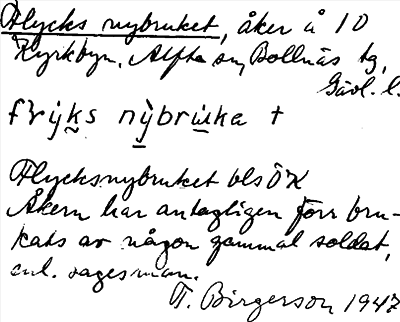 Flycks nybruket, åker å 10
Kyrkbyn, Alfta sn, Bollnäs tg,
Gävl. l.
frýk̬s nỳbrɯka +
Flycksnybruket bls ÖK
Åkern har antagligen förr bru-
kats av någon gammal soldat,
enl. sagesman.
T. Birgerson 1947